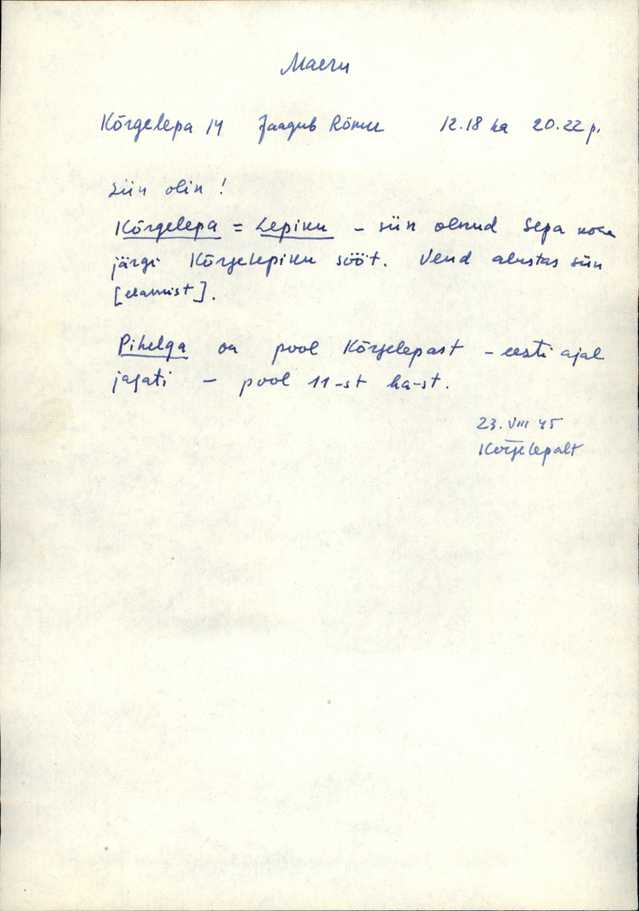 Maeru
Kõrgelepa 14 Jaagub Rõmu 12.18 ha 20.22 p.
Siin olin!
Kõrgelepa = Lepiku – siin olnud Sepa
järgi Kõrgelepiku sööt. Vend alustas siin
[elamist].
Pihelga on pool Kõrgelepast – eesti ajal
jagati – pool 11-st ha-st.
23. VIII 45
Kõrgelepalt